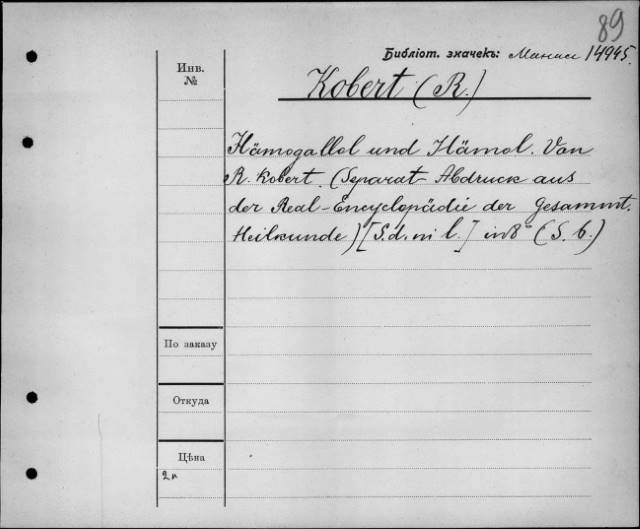 89
Библіот. значекъ: 14945.
Инв.
№
Kobert (R.)
Hämogallol und Hämol. Von
R. Kobert. (Separat-Abdruck aus
der Real-Encyclopädie der Gesammt.
Heilkunde) [S. d. ni l.] in 8° (S. 6.)
По заказу
Откуда
Цѣна